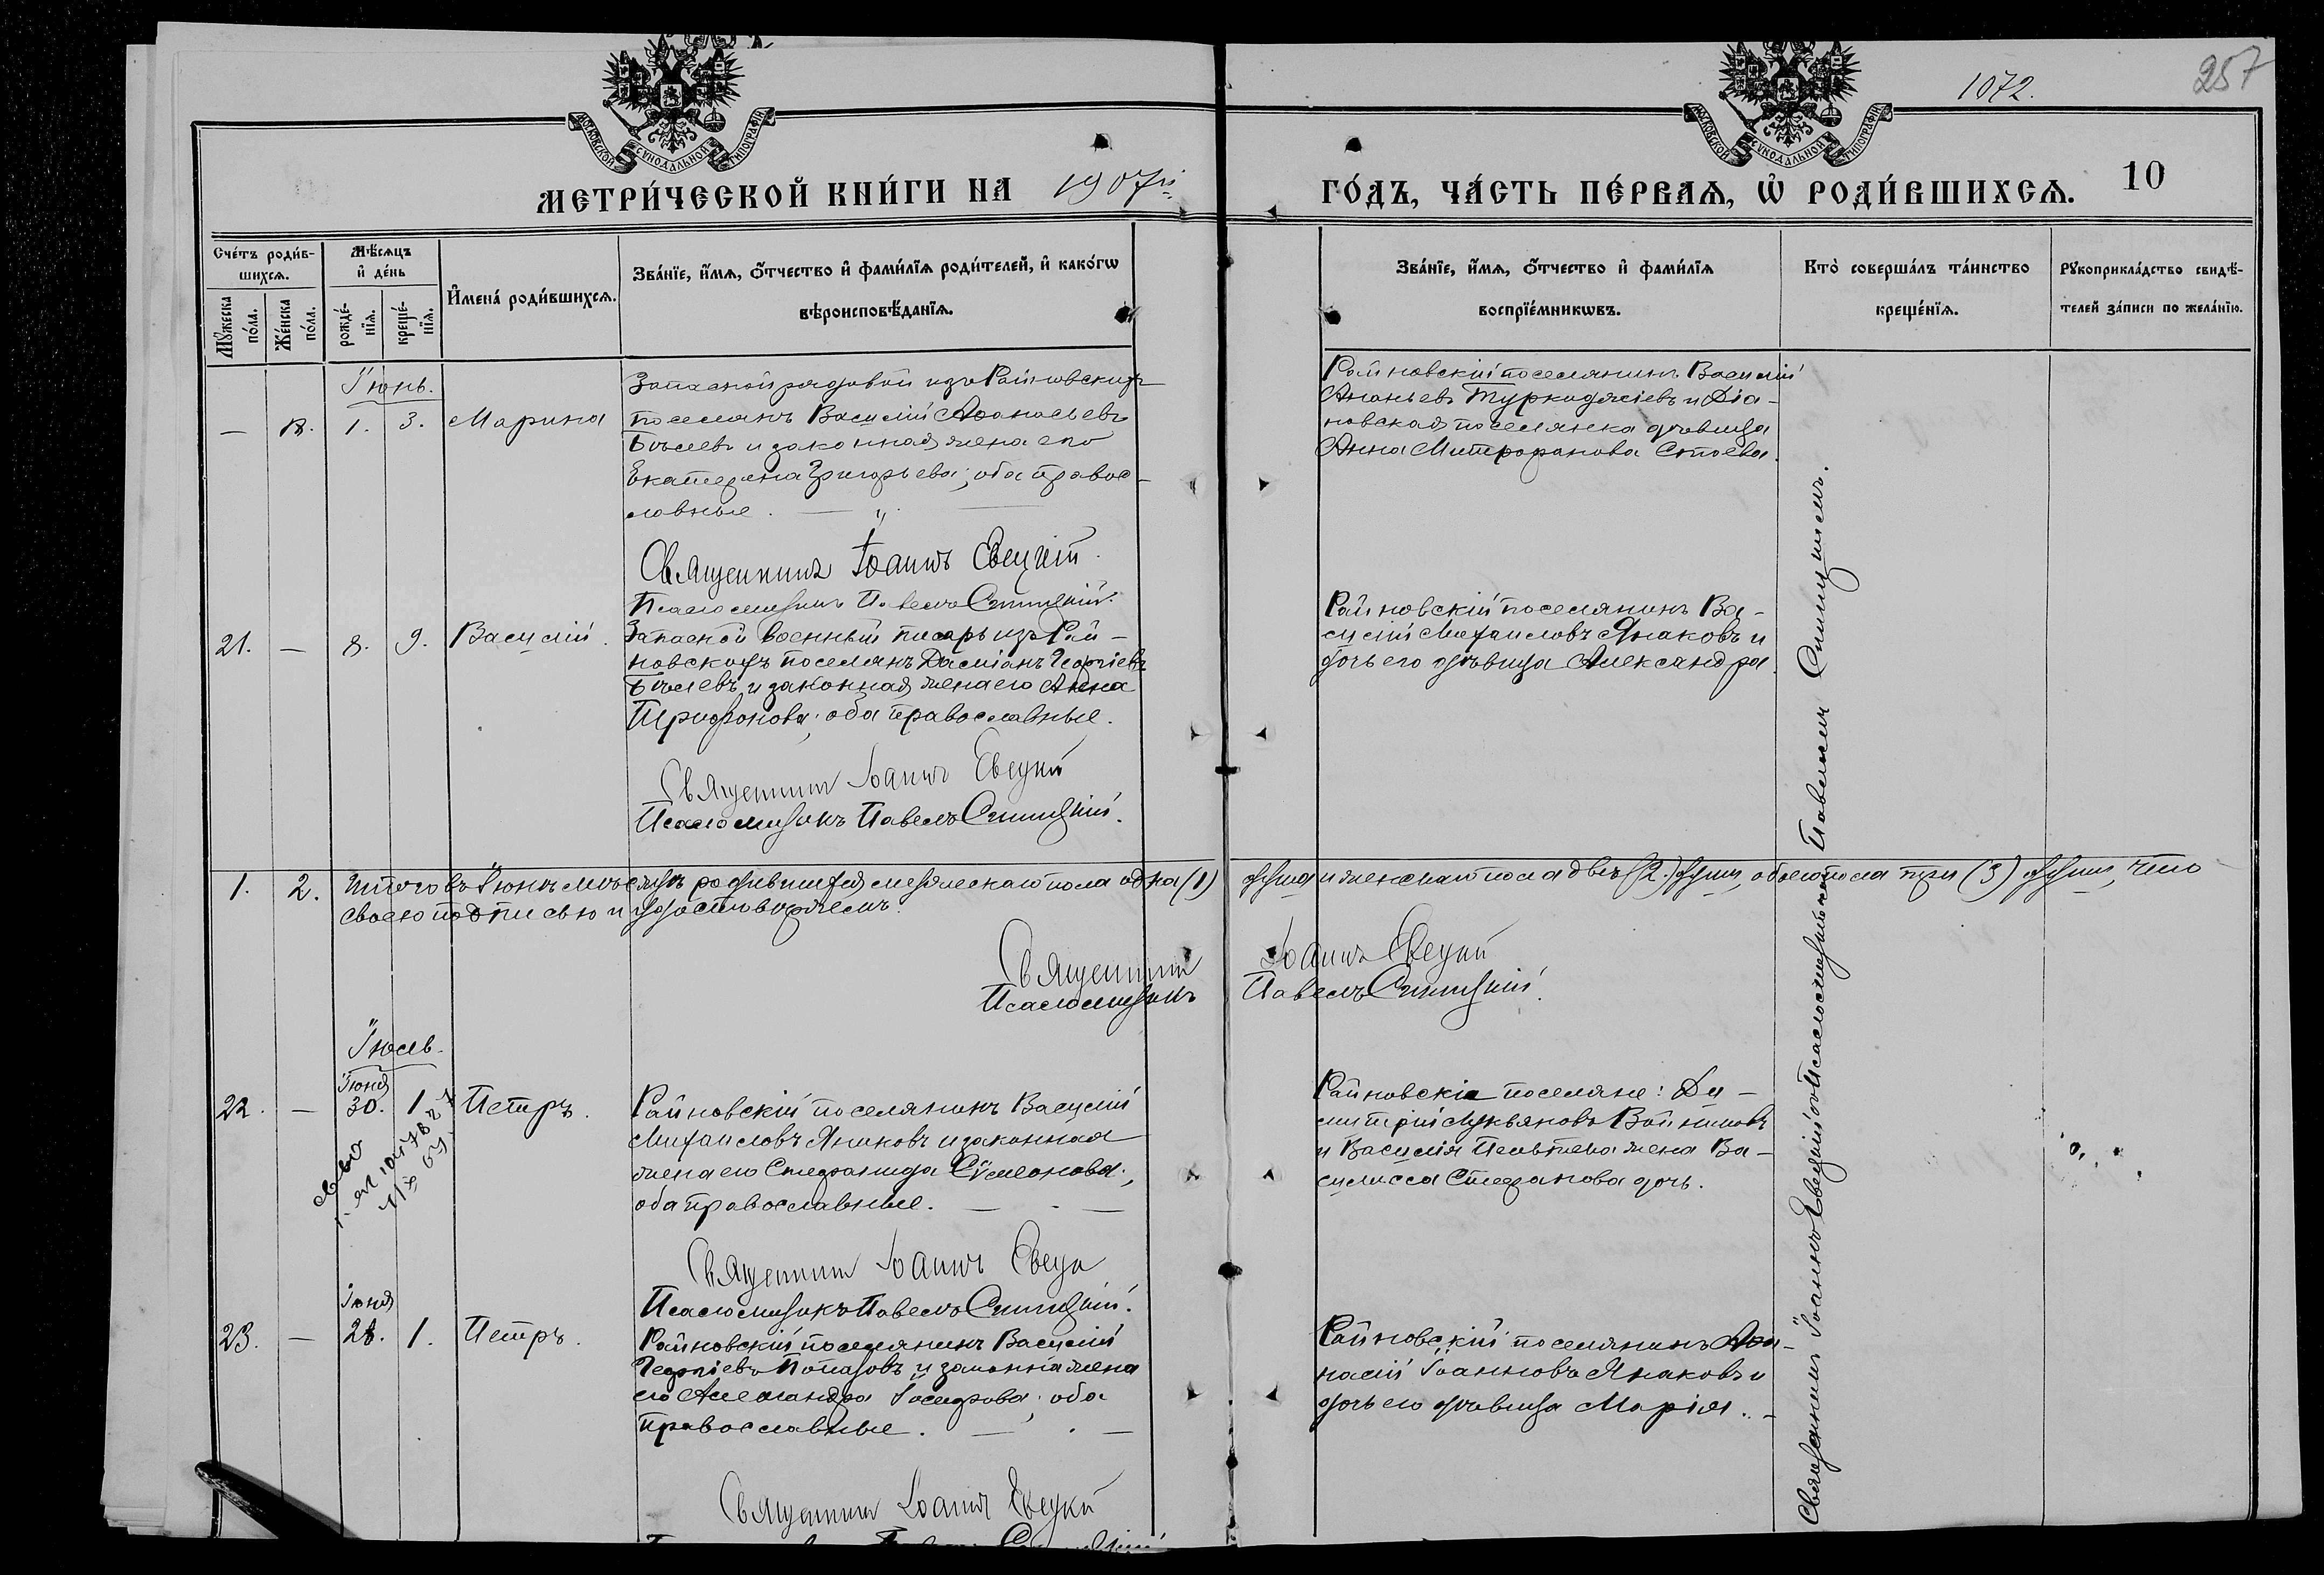 1072.
257
МОСКОВСКОЙ СѴНОДАЛЬНОЙ ТИПОГРАФІИ
МОСКОВСКОЙ СѴНОДАЛЬНОЙ ТИПОГРАФІИ
МЕТРИ́ЧЕСКОЙ КНИ́ГИ НА 1907й ГО́ДЪ, ЧА́СТЬ ПЕ́РВАѦ, Ѡ҆ РОДИ́ВШИХСѦ. 10
Сче́тъ роди́в-
шихсѧ.
Мꙋ́жеска
по́ла.
Же́нска
по́ла.
Мѣ́сѧцъ
и҆ де́нь
рожде́-
нїѧ.
креще́-
нїѧ.
И҆мена́ роди́вшихсѧ.
Зва́нїе, и҆́мѧ, ѻ҆́тчество и҆ фами́лїѧ роди́телей, и҆ како́гѡ
вѣроисповѣ́данїѧ.
Зва́нїе, и҆́мѧ, ѻ҆́тчество и҆ фами́лїѧ
воспрїе́мникѡвъ.
Кто̀ соверша́лъ та́инство
креще́нїѧ.
Рꙋкоприкла́дство свидѣ́-
телей за́писи по жела́нїю.
Іюнь.
— 18. 1. 3. Марина
Запасной рядовой изъ Райновскихъ
поселянъ Василій Аѳанасьевъ
Бѣлевъ и законная жена его
Екатерина Григорьева; оба правос-
лавные. — „ —
Священникъ Іоаннъ Евецкій.
Псаломщикъ Павелъ Спицкій.
Райновскій поселянинъ Василій
Ананьевъ Туркоджіевъ и Діа-
новская поселянка дѣвица
Анна Митрофанова Стоева.
21. — 8. 9. Василій.
Запасной военный писарь изъ Рай-
новскихъ поселянъ Даміанъ Георгіевъ
Бѣлевъ и законная жена его Анна
Трифонова; оба православные.
Священникъ Іоаннъ Евецкій
Псаломщикъ Павелъ Спицкій.
Райновскій поселянинъ Ва-
силій Михаиловъ Янаковъ и
дочь его дѣвица Александра
1. 2. Итого въ Іюнѣ мѣсяцѣ родившихся мужескаго пола одна (1) душа и женскаго пола двѣ (2.) души, обоего пола три (3) души, что
своею подписью и удостовѣряемъ.
Священникъ Іоаннъ Евецкій
Псаломщикъ Павелъ Спицкій.
Іюль.
22. — Іюня 30. 1 Петръ.
Райновскій поселянинъ Василій
Михаиловъ Янаковъ и законная
жена его Стефанида Сѵмеонова;
оба православные. — . —
Священникъ Іоаннъ Евецк
Псаломщикъ Павелъ Спицкій.
Райновскіе поселяне: Ди-
митрій Лукьяновъ Войниковъ
и Василія жена Ва-
силисса Стефанова дочь.
23. — Іюня 28. 1. Петръ.
Райновскій поселянинъ Василій
Георгіевъ Попазовъ и законная жена
его Александра Іосифова; оба
православные. — . —
Священникъ Іоаннъ Евецкій
Райновскій поселянинъ Аѳа-
насій Іоанновъ Янаковъ и
дочь его дѣвица Марія. —
Священникъ Іоаннъ Евецкій съ Псаломщикомъ Павеломъ Спицкимъ.